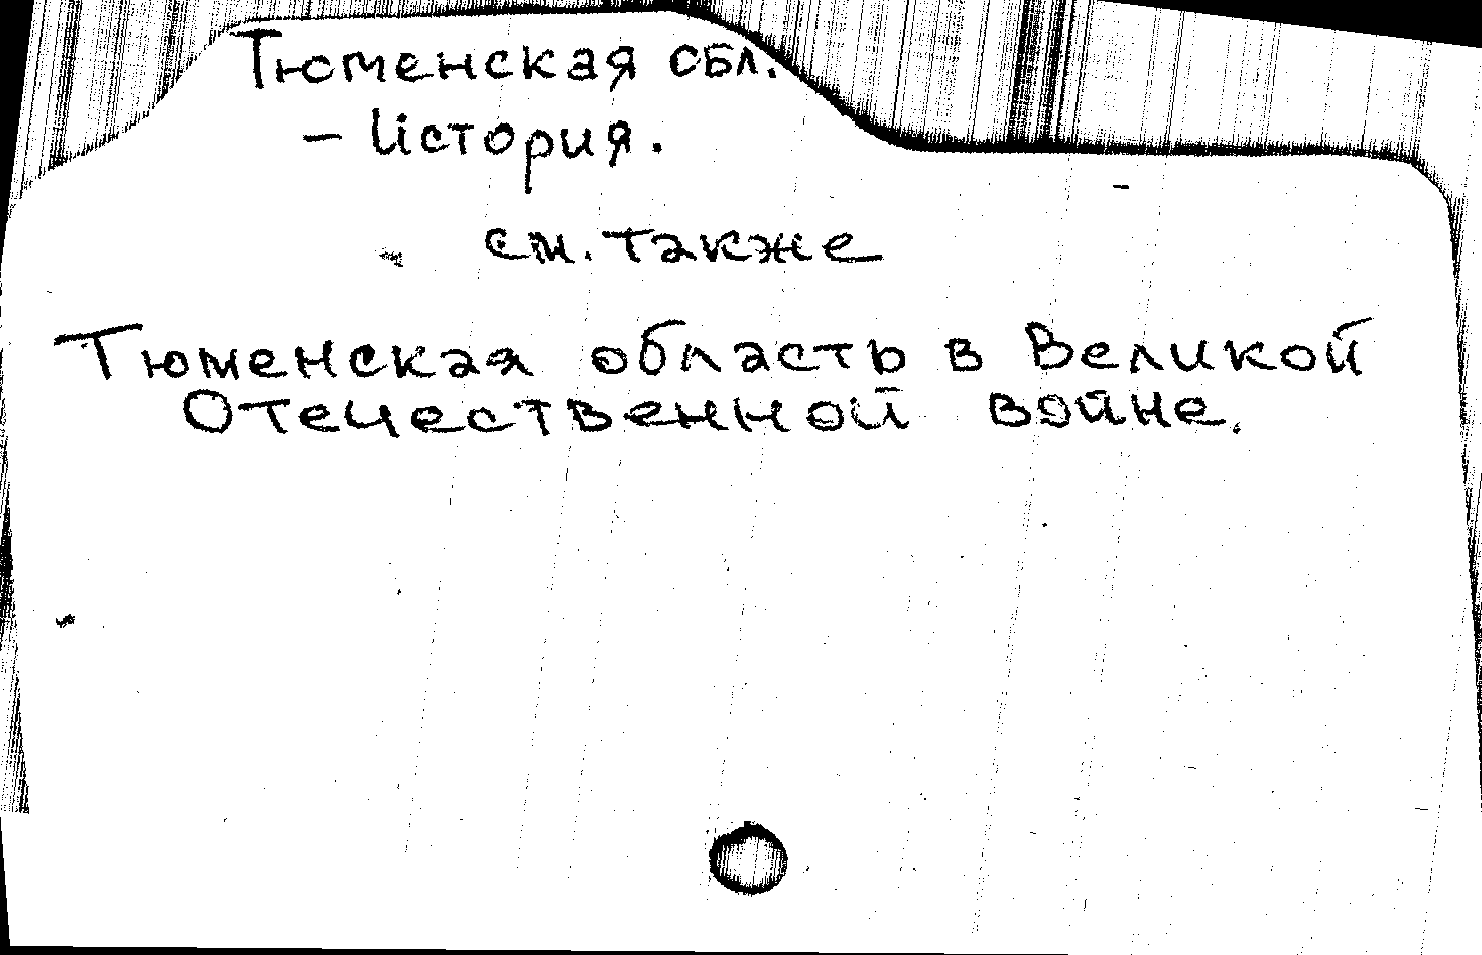 Тюменская обл.
– История.
см. также
Тюменская область в Великой
Отечественной войне.